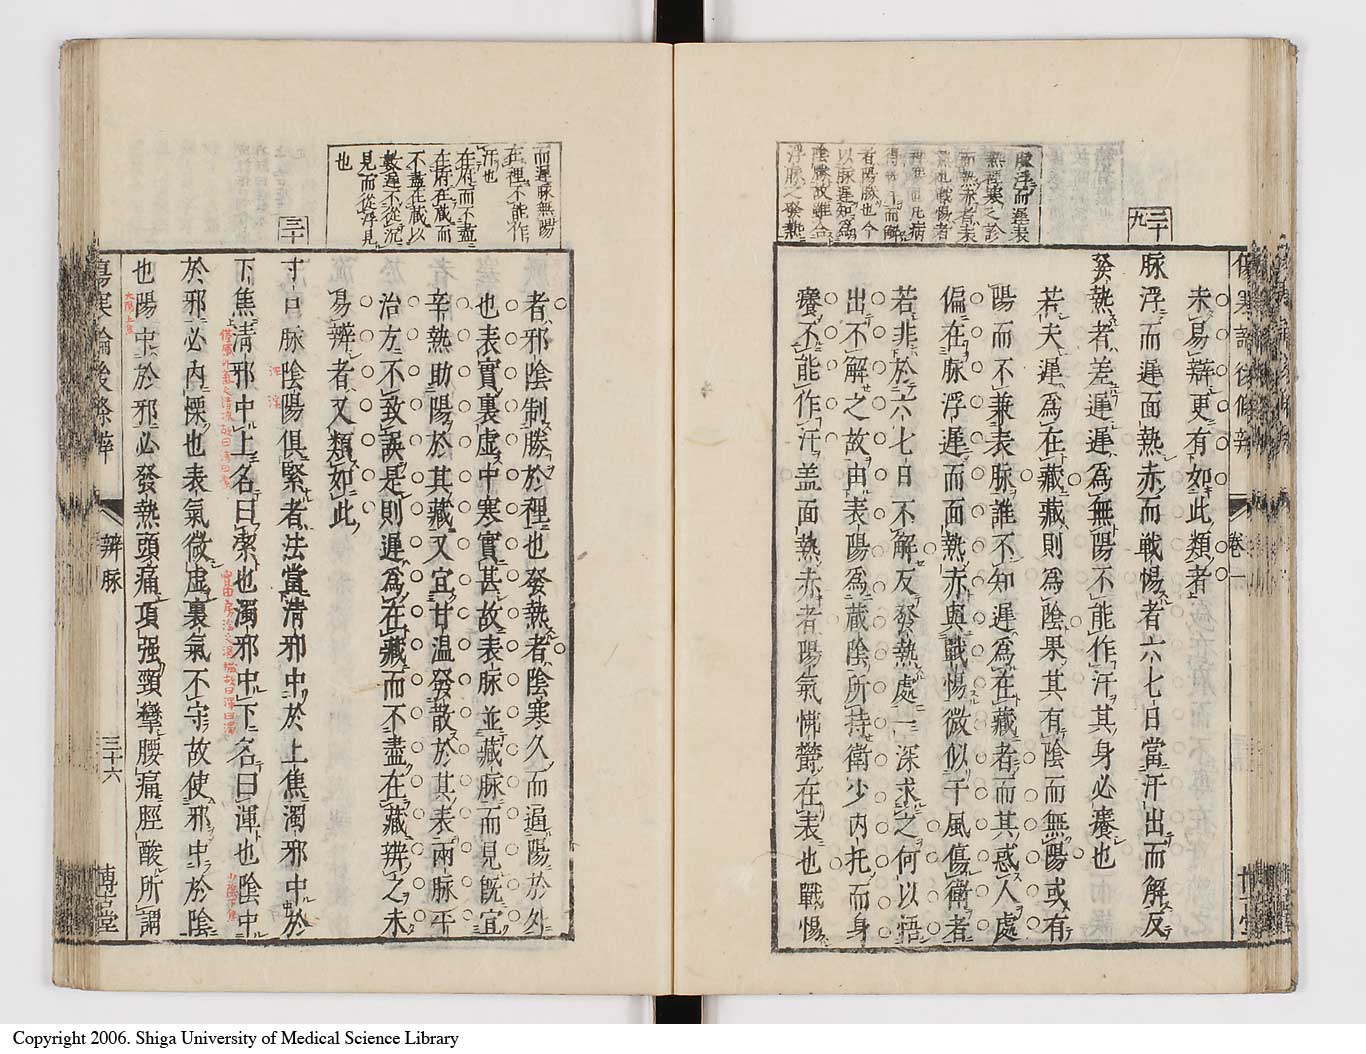 脉浮而遲表
熱裡寒之診
而熱赤者表
熱也戰惕者
裡寒也凡病
得汗而解
者陽勝也今
以脉遲知爲
陰勝故雖合
浮脉之發熱
二十九
未易辯更有如此類者
脉浮而遲面熱赤而戰惕者六七日當汗出而解反
發熱者差遲遲爲無陽不能作汗其身必癢也
若夫遲爲在藏藏則爲陰果其有陰而無陽或有
陽而不兼表脉誰不知遲爲在藏者而其惑人處
偏在脉浮遲而面熱赤與戰惕微似于風傷衛者
若非於六七日不解反發熱處一深求之何以悟
出不解之故由表陽爲藏陰所持衛少內托而身
癢不能作汗盖面熱赤者陽氣怫鬱在表也戰惕
而遲脉無陽
在裡不能作
汗也
在府而不盡
在府在藏而
不盡在藏以
數遲不從沉
見而從浮見
也
三十
者邪陰制勝於裡也發熱者陰寒久而逼陽於外
也表實裏虛中寒實甚故表脉並藏脉而見旣宜
辛熱助陽於其藏又宜甘溫發散於其表兩脉平
治方不致誤是則遲爲在藏而不盡在藏辨之未
易辨者又類如此
寸口脉陰陽俱緊者法當清邪中於上焦濁邪中於
下焦清邪中上名曰潔也濁邪中下名曰渾也陰中
於邪必內慄也表氣微虛裏氣不守故使邪中於陰
也陽中於邪必發熱頭痛項强頸攣腰痛脛酸所謂
傷寒論後條辨
辨脉
三十六
博古堂
Copyright 2006. Shiga University of Medical Science Library